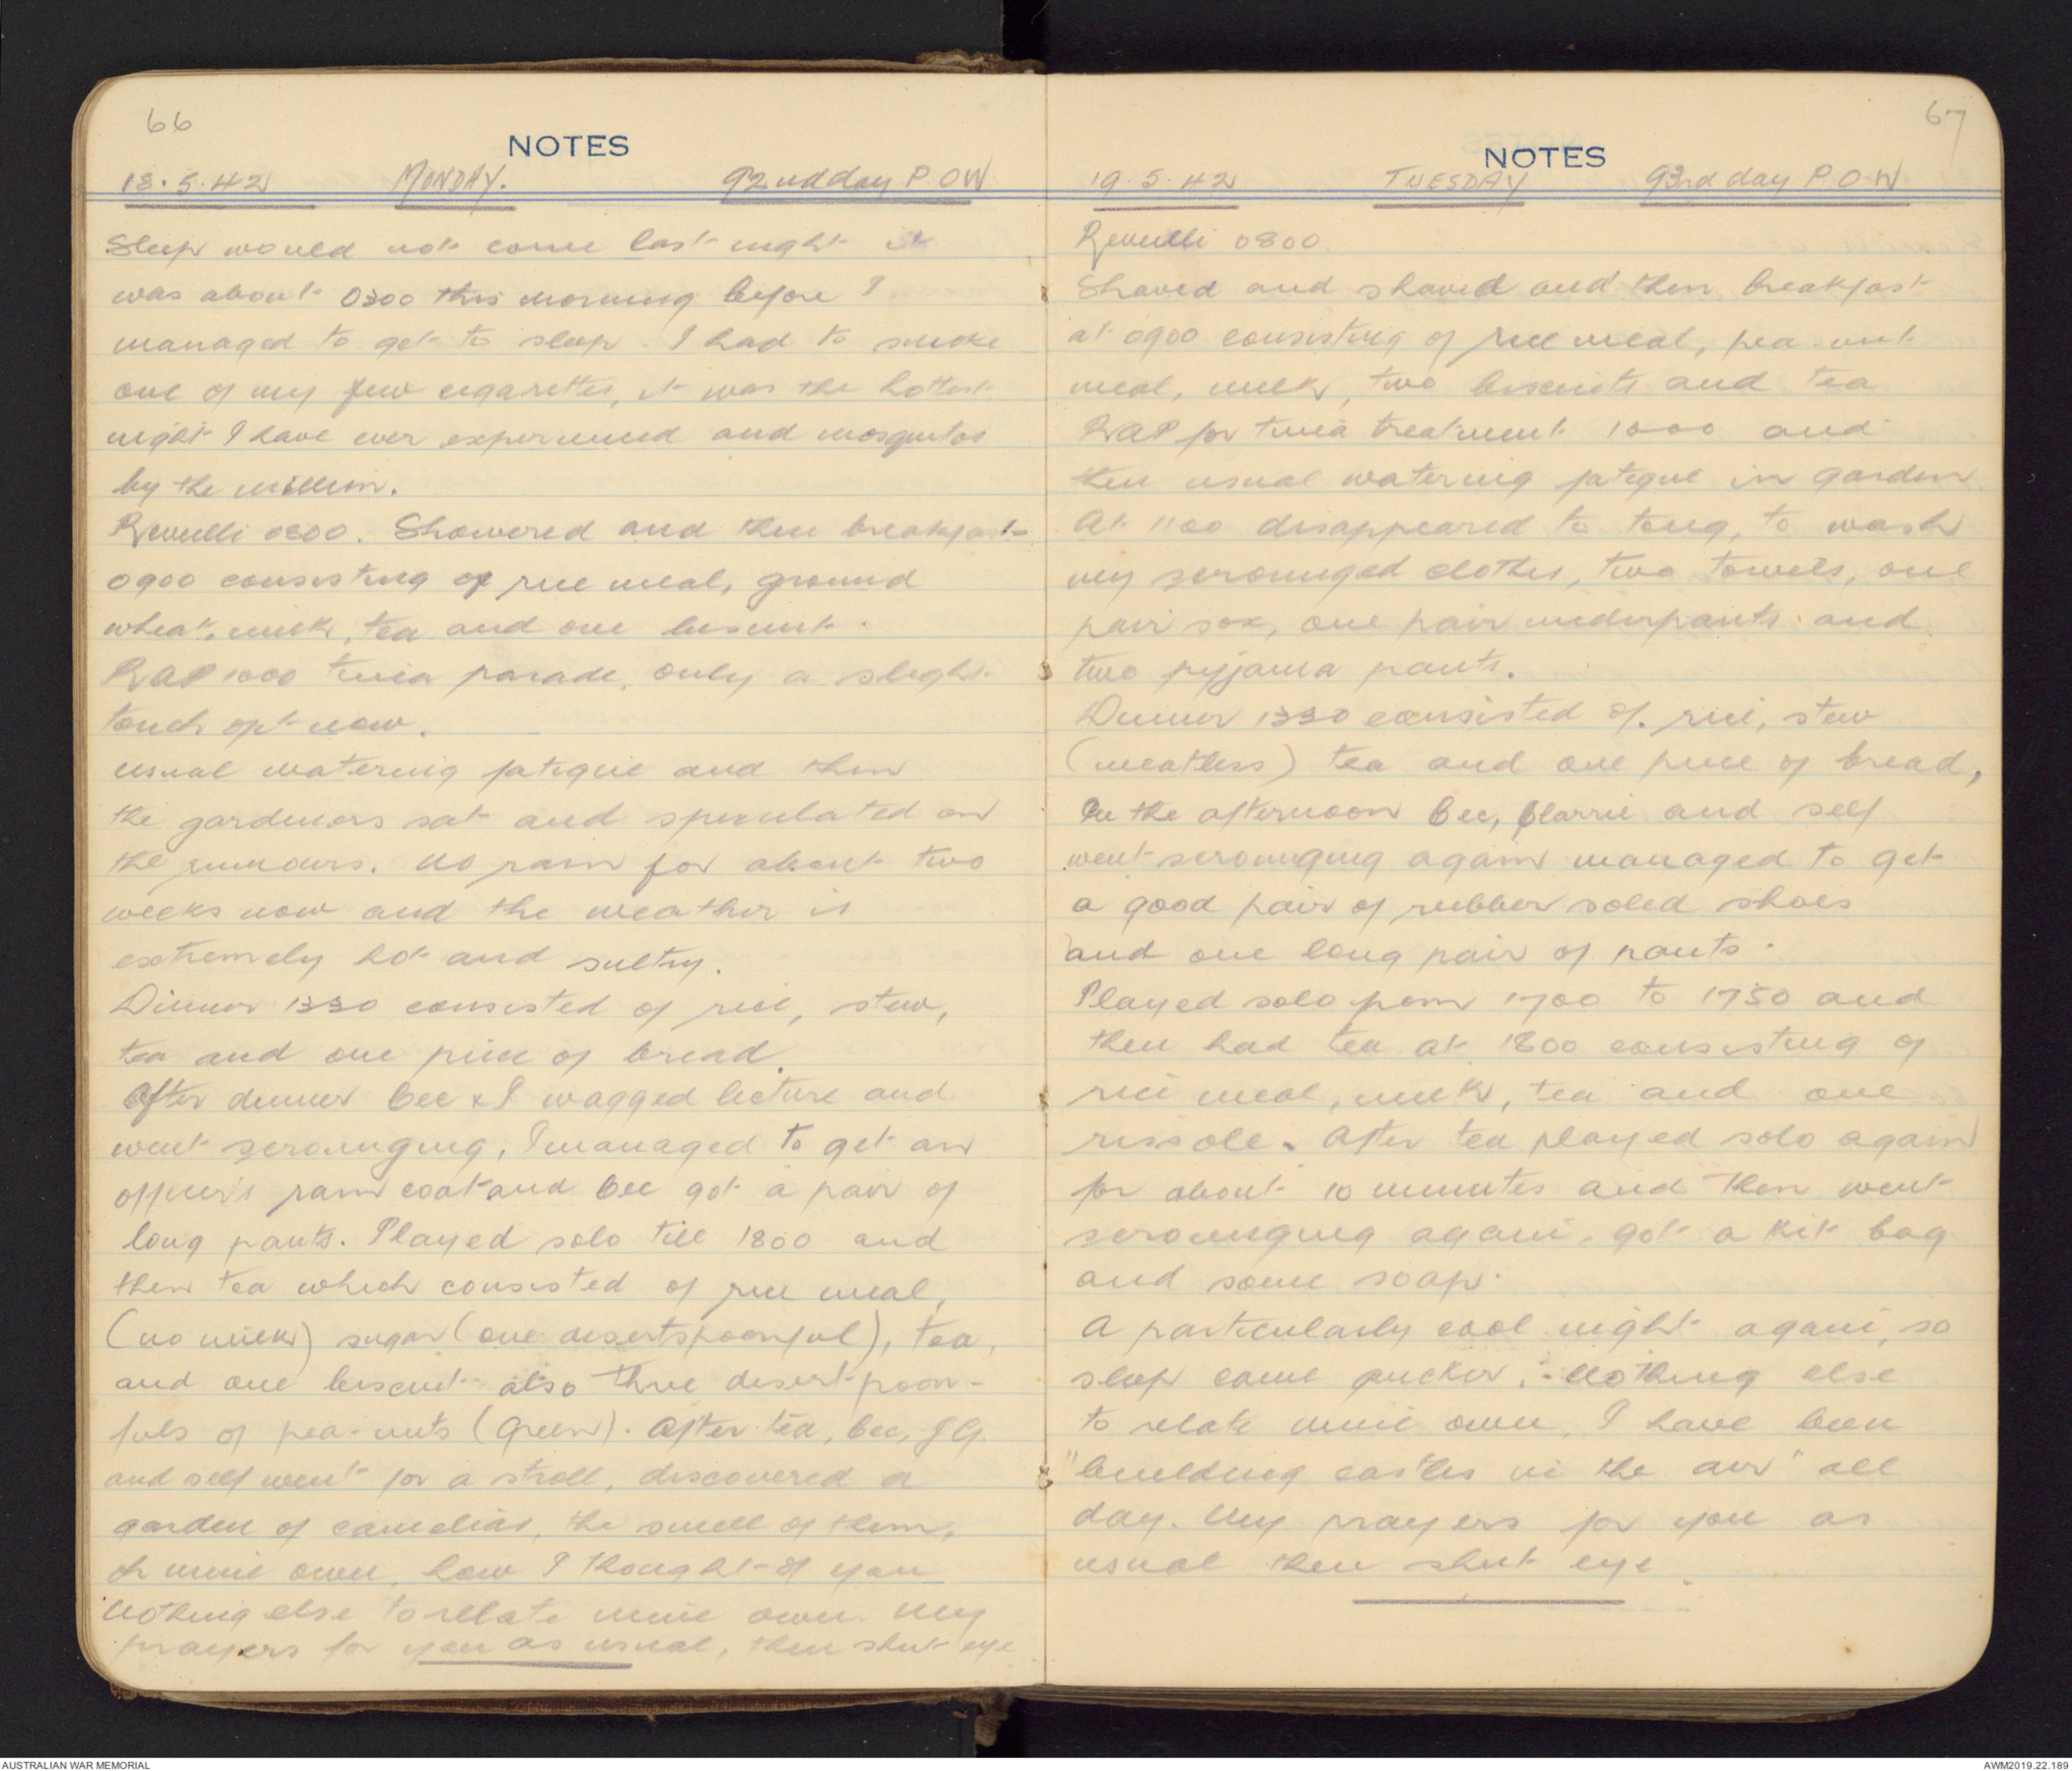 66
NOTES
18.5.42 MONDAY. 92nd day P.O.W
Sleep would not come last night it
was about 0300 this morning before I
managed to get to sleep. I had to smoke
one of my few cigarettes, it was the hottest
night I have ever experienced and mosquitos
by the million.
Reveilli 0800. Showered and then breakfast
0900 consisting of rice meal, ground
wheat, milk, tea and one biscuit.
RAP 1000 tinea parade, only a slight
touch of it now.
usual watering fatigue and then
the gardenors sat and speculated on
the rumours. No rain for about two
weeks now and the weather is
extremely hot and sultry.
Dinner 1330 consisted of rice, stew,
tea and one piece of bread.
After dinner Cec & I wagged lecture and
went scrounging, I managed to get an
officer's rain coat and Cec got a pair of
long pants. Played solo till 1800 and
then tea which consisted of rice meal,
(no milk) sugar (one desertspoonful), tea,
and one biscuit also three desertspoon-
fuls of pea-nuts (green). After tea, Cec,
and self went for a stroll, discovered a
garden of camelias, the smell of them,
oh mine own, how I thought of you
Nothing else to relate mine own. My
prayers for you as usual, then shut eye
67
NOTES
19.5.42 TUESDAY 93rd day P.O.W
Reveilli 0800.
Shaved and shaved and then breakfast
at 0900 consisting of rice meal, pea-nut
meal, milk, two biscuits and tea
RAP for tinea treatment 1000 and
then usual watering fatigue in garden.
At 1100 disappeared to tong, to wash
my scrounged clothes, two towels, one
pair sox, one pair underpants and
two pyjama pants.
Dinner 1330 consisted of rice, stew
(meatless) tea and one piece of bread,
In the afternoon Cec, Clarrie and self
went scrounging again managed to get
a good pair of rubber soled shoes
and one long pair of pants.
Played solo from 1700 to 1750 and
then had tea at 1800 consisting of
rice meal, milk, tea and one
rissole. After tea played solo again
for about 10 minutes and then went
scrounging again, got a kit bag
and some soap.
A particularly cool night again, so
sleep came quicker. Nothing else
to relate mine own, I have been
"building castles in the air" all
day. My prayers for you as
usual then shut eye.
AUSTRALIAN WAR MEMORIAL
AWM2019.22.189